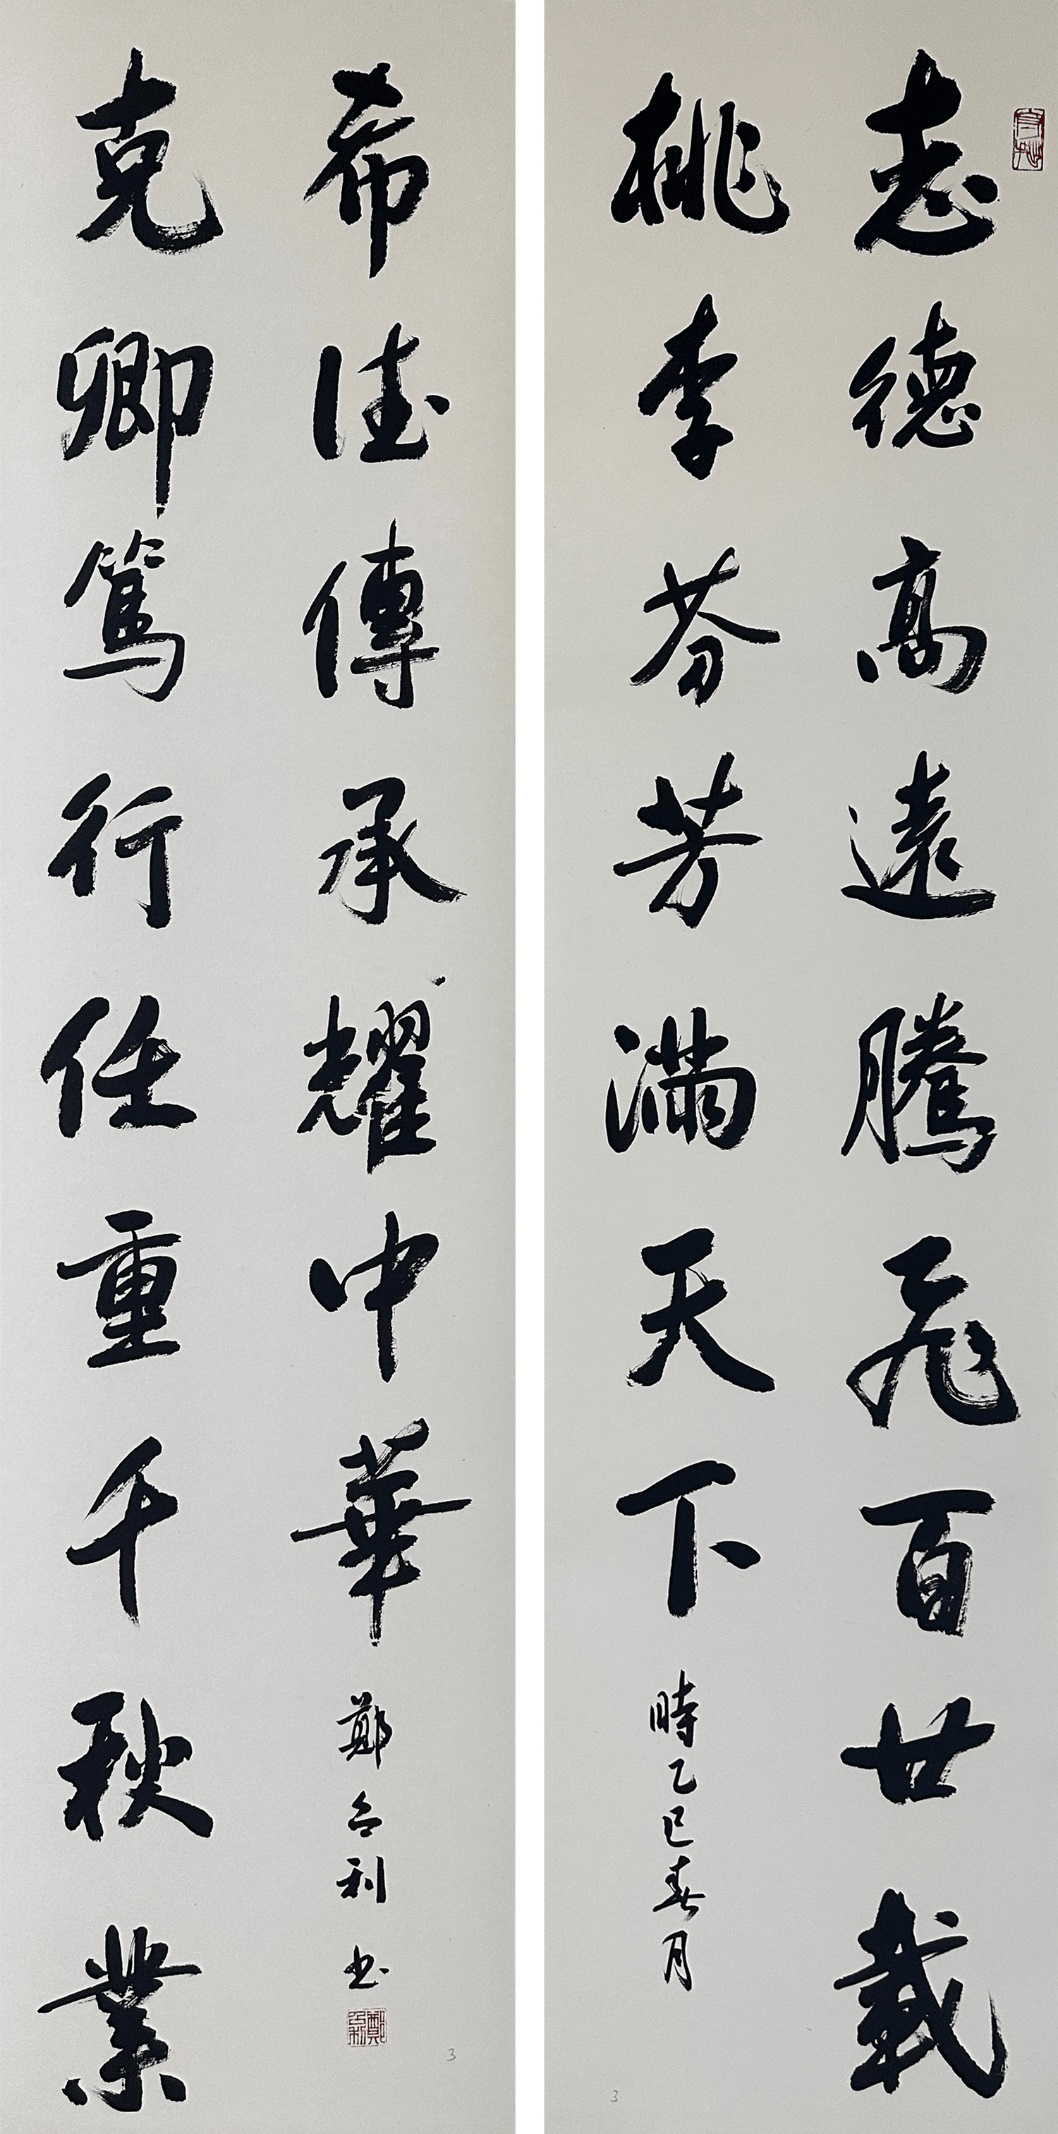 志德高遠騰飛百廿載
桃李芬芳滿天下
時乙巳春月
克卿篤行任重千秋業
希德傳承耀中華
鄭利書